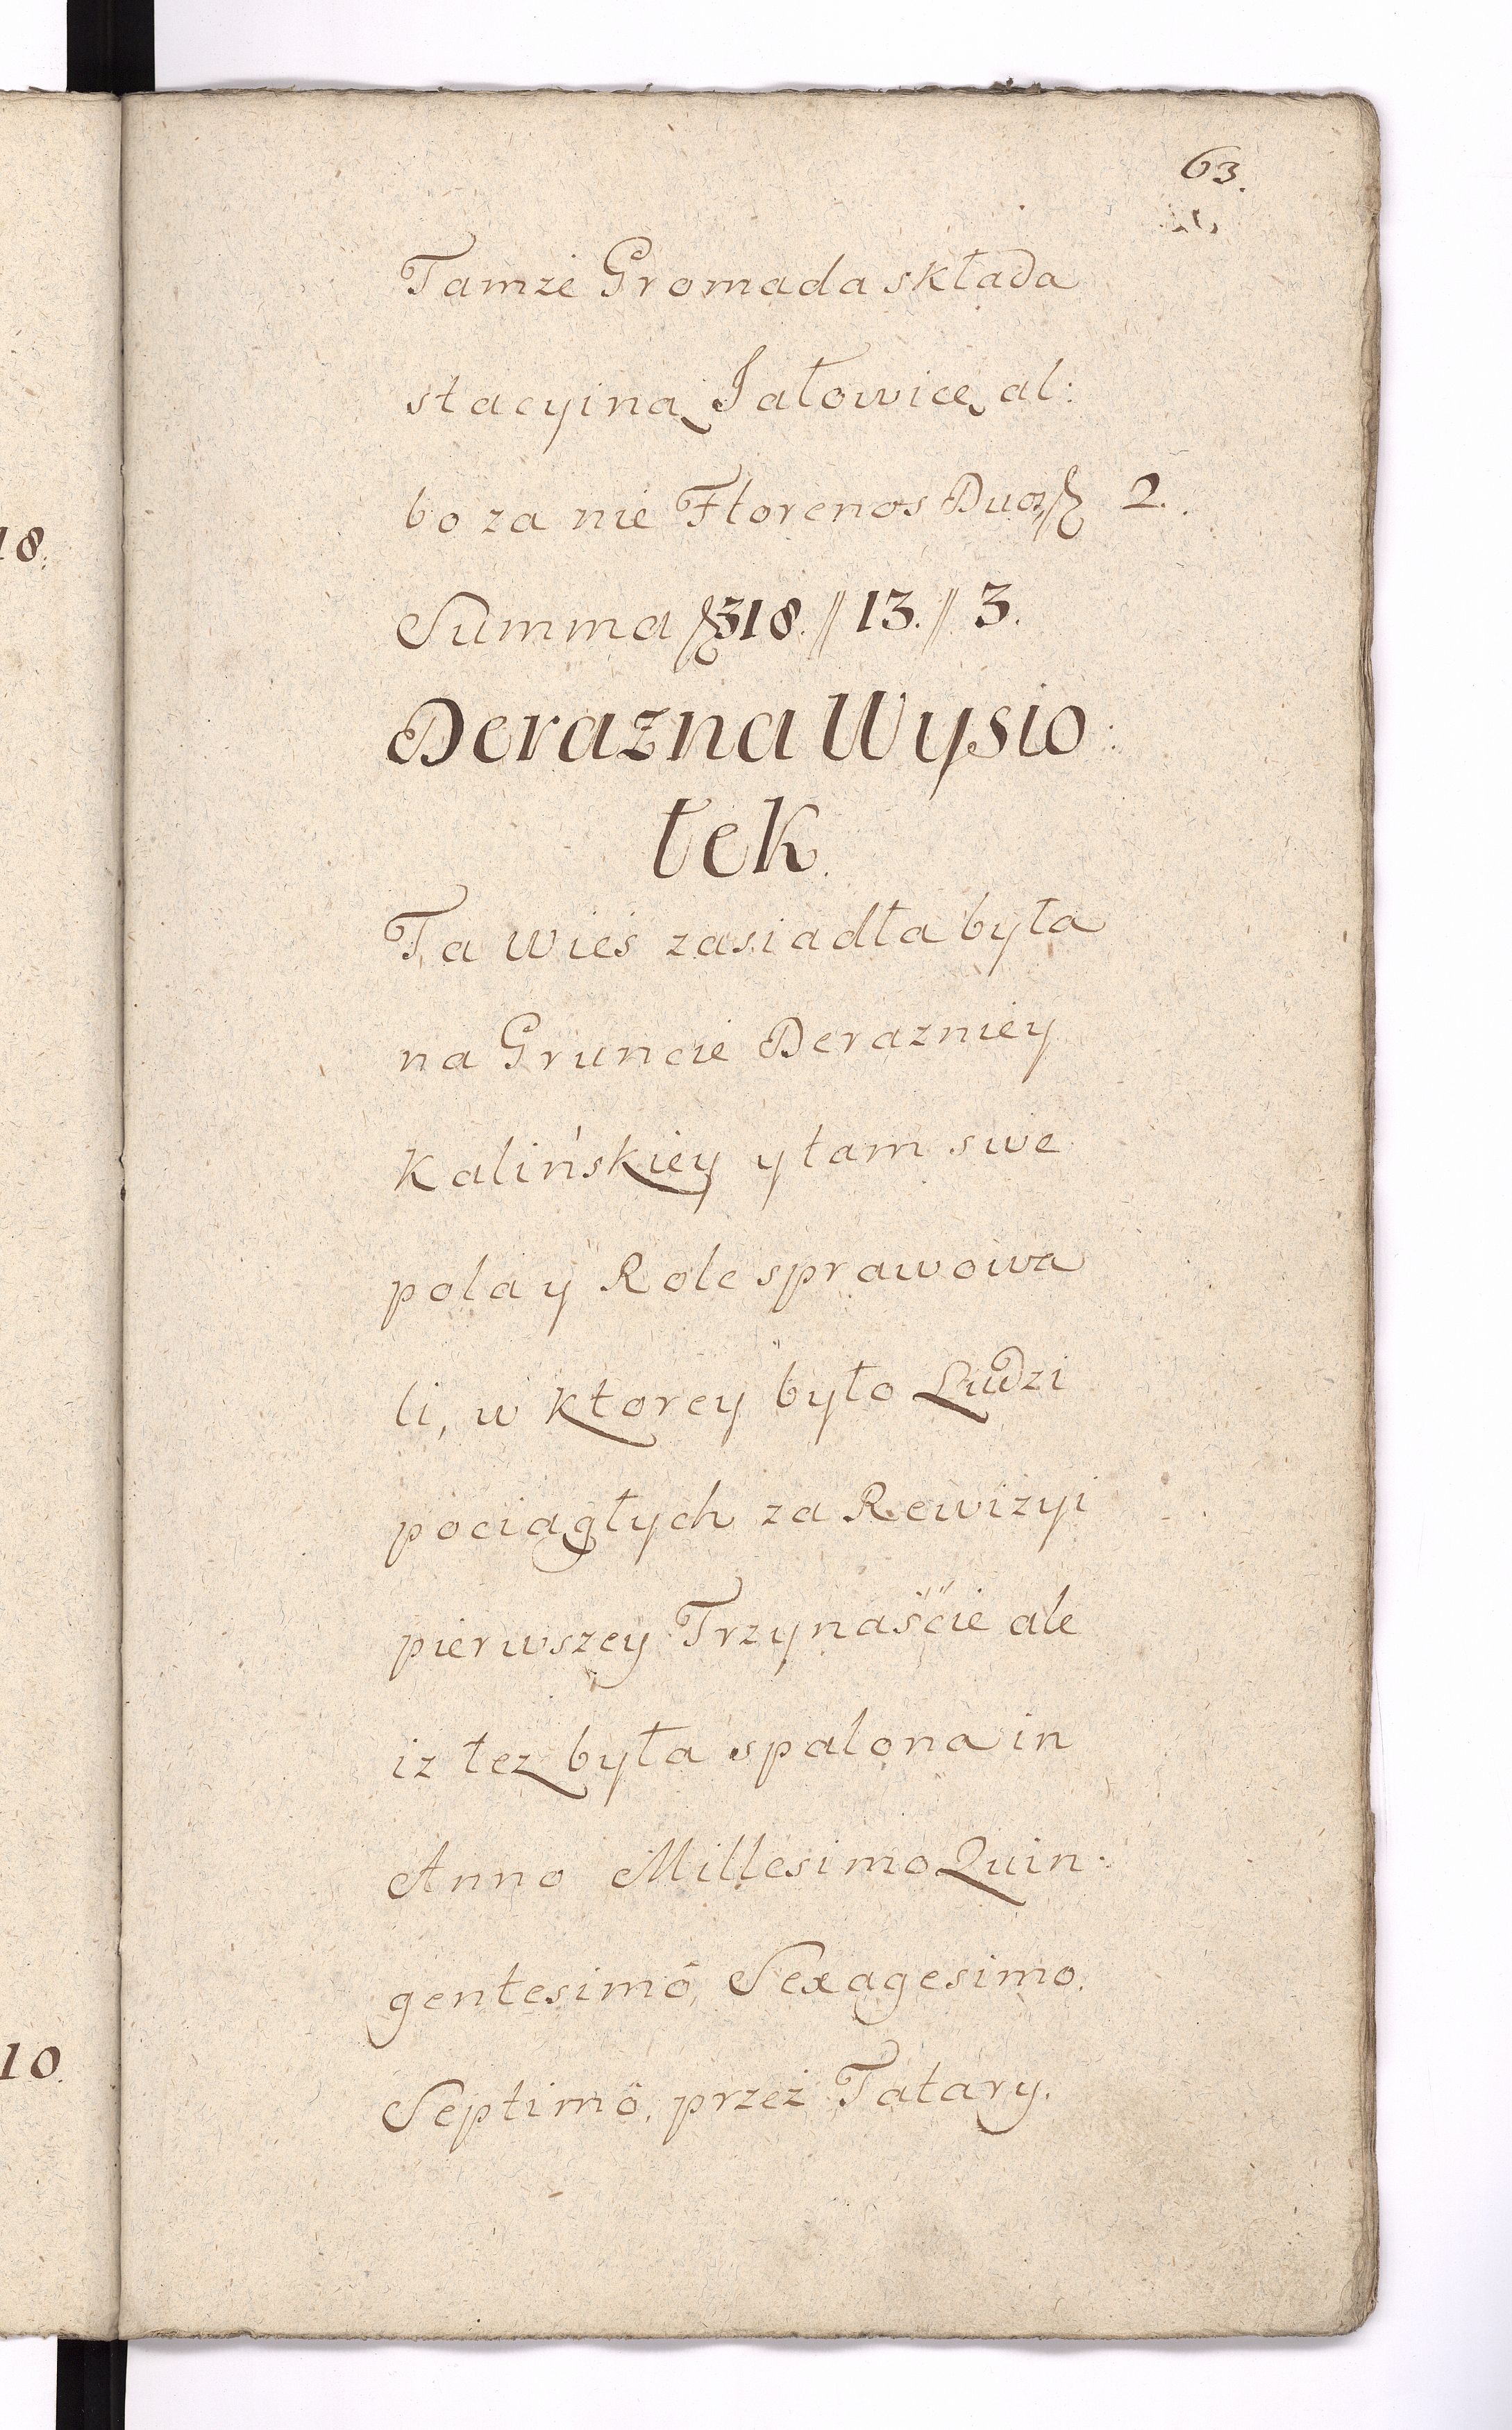 63.
18.
Tamże Gromada składa
stacyiną Jałowicę al:
bo za nie Florenos Duos // ƒ 2.
Summa ƒ 318. // 13. // 3.
Derazna Wysio:
łek.
Ta wieś zasiadła była
na Gruncie Derazniey
Kalińskiey y tam swe
pola y Role sprawowa
li, w ktorey było Ludzi
pociągłych za Rewizyi
pierwszey Trzynaście ale
iz tez była spalona in
Anno Millesimo Quin:
gentesimô, Sexagesimo.
10.
Septimô, przez Tatary.